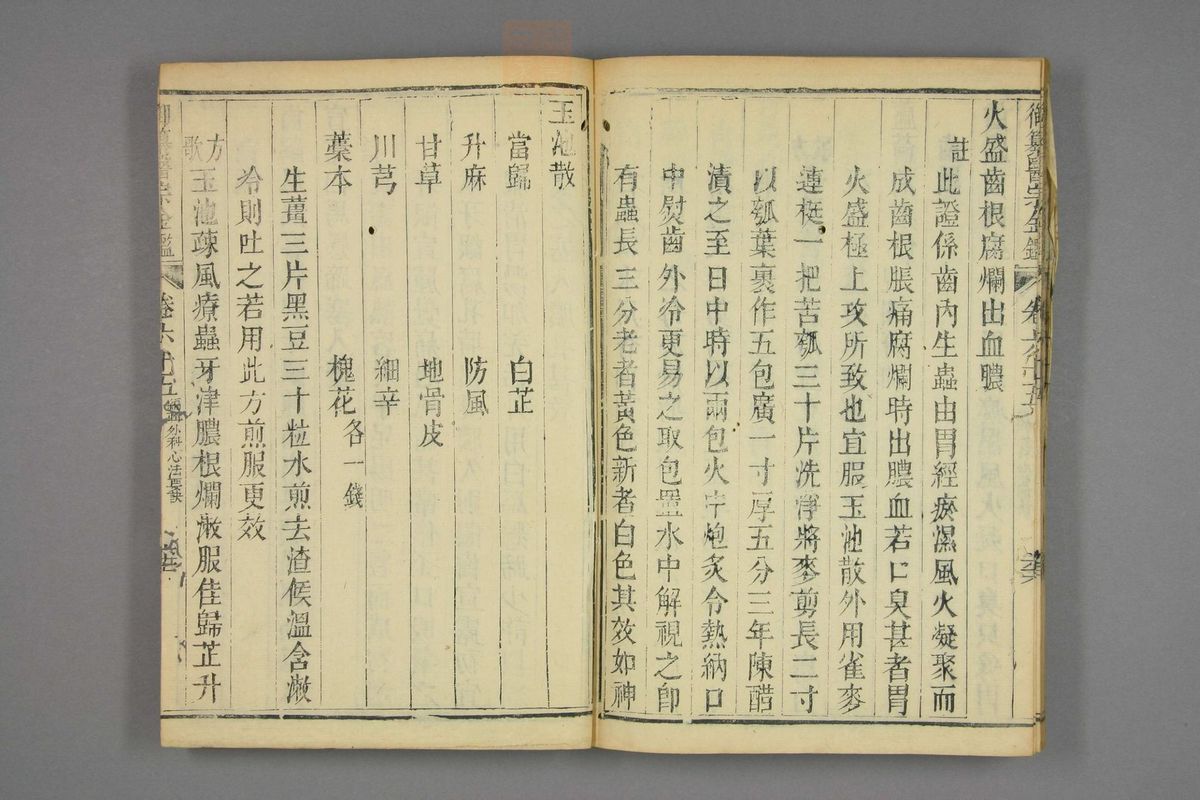 御纂醫宗金鑑 卷六十五
火盛齒根腐爛出血膿
註
此證係齒內生蟲由胃經瘀濕風火凝聚而
成齒根脹痛腐爛時出膿血若口臭甚者胃
火盛極上攻所致也宜服玉池散外用雀麥
連梃一把苦瓠三十片洗淨將麥剪長二寸
以瓠葉裹作五包廣一寸厚五分三年陳醋
漬之至日中時以兩包火中炮炙令熱納口
中熨齒外冷更易之取包置水中解視之卽
有蟲長三分老者黃色新者白色其效如神
玉池散
當歸 白芷
升麻 防風
甘草 地骨皮
川芎 細辛
藁本 槐花各一錢
生薑三片黑豆三十粒水煎去渣候溫含漱
冷則吐之若用此方煎服更效
方歌 玉池疎風療蟲牙津膿根爛漱服佳歸芷升
御纂醫宗金鑑 卷六十五 外科心法要訣